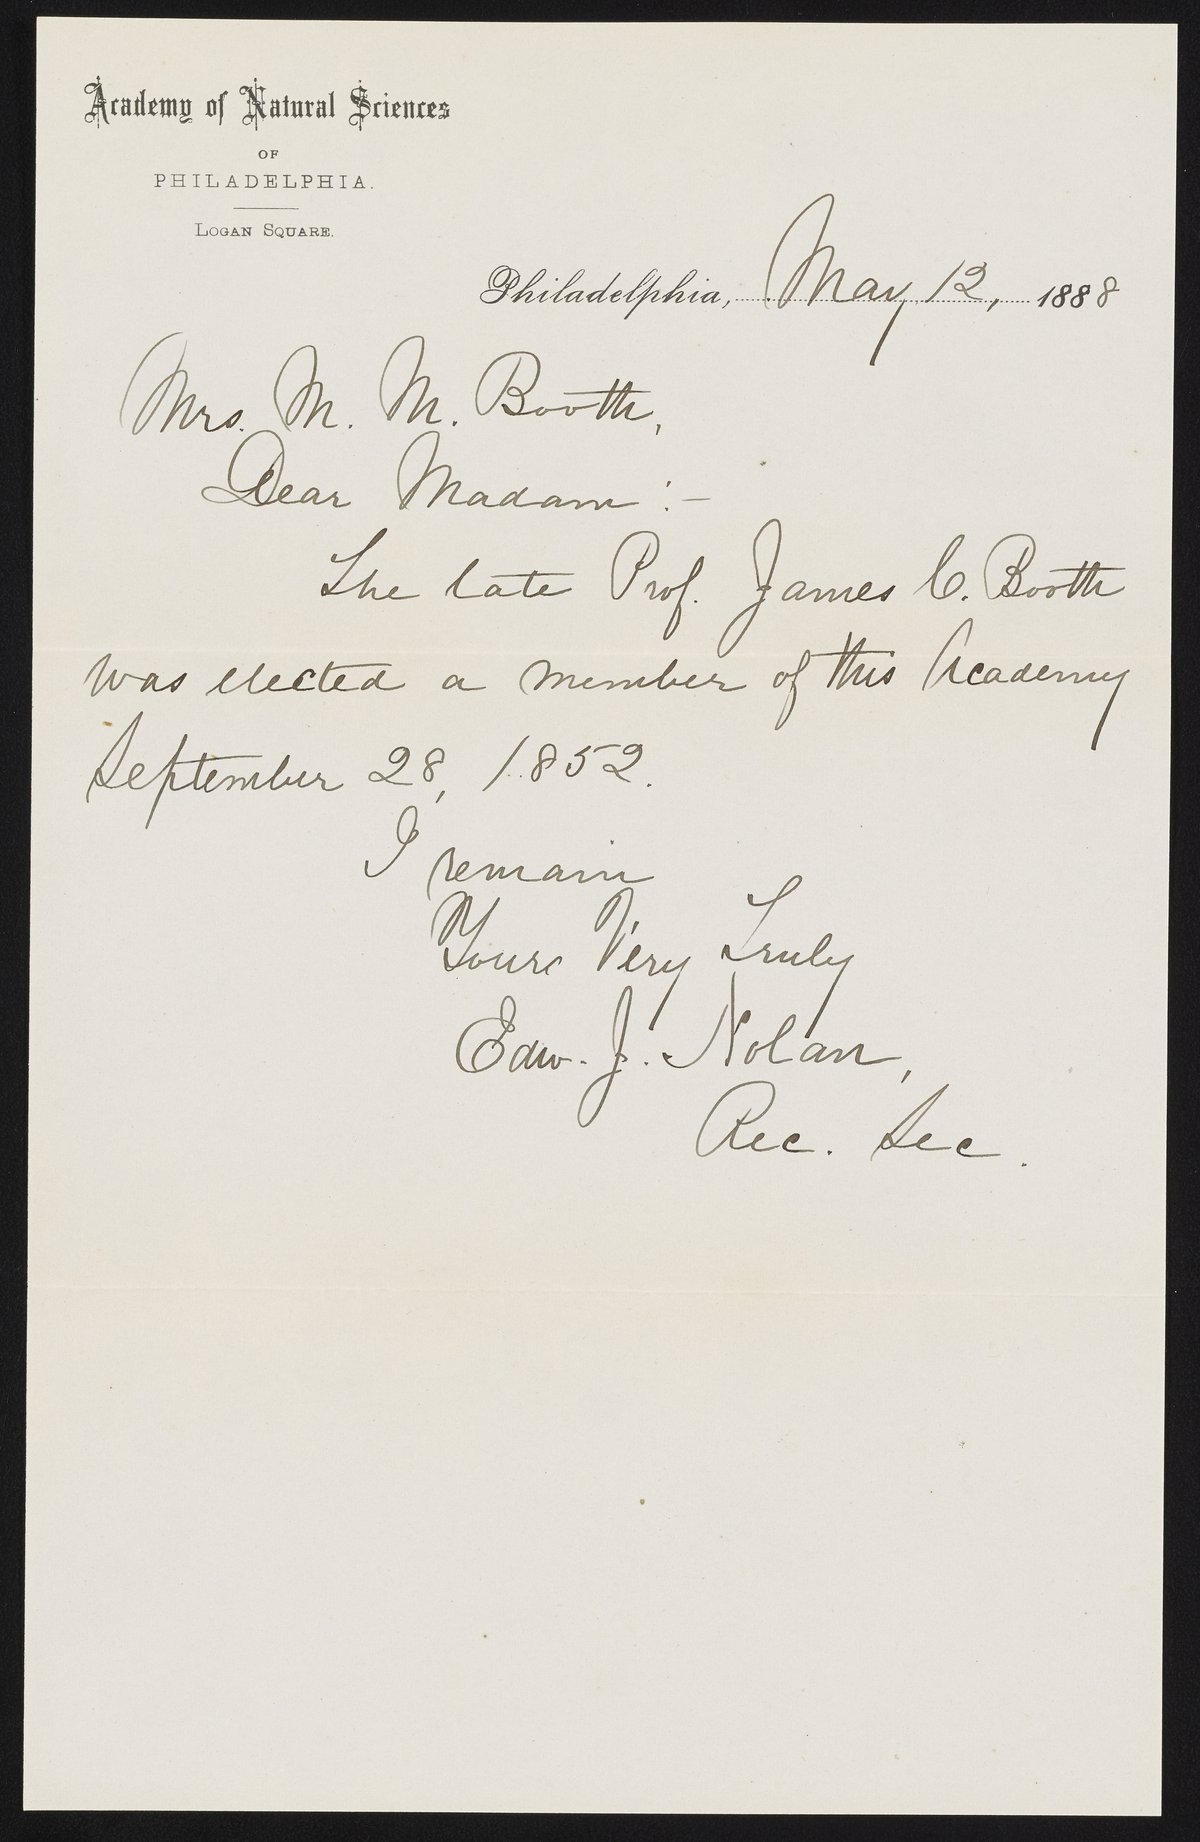 Academy of Natural Sciences
OF
PHILADELPHIA.
LOGAN SQUARE.
Philadelphia, May 12, 1888
Mrs. M. M. Booth,
Dear Madam:-
The late Prof. James C. Booth
was elected a member of this Academy
September 28, 1852.
I remain
Yours Very Truly
Edw. J. Nolan,
Rec. Sec.